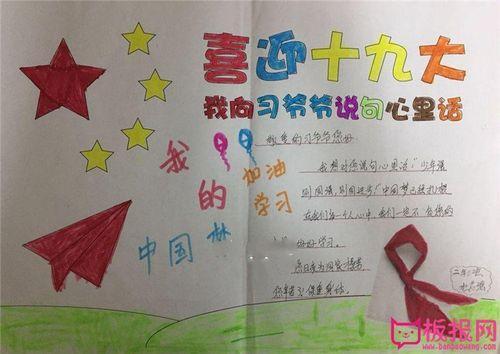 喜迎十九大
我向习爷爷说句心里话
我
加油
的
学习
中国梦
敬爱的习爷爷您好
我想对您说句心里话:"少年强
则国强,则国进步"中国梦已被扎根
在我们每一个人心中,我们一定不负您的
好好学习。
您辛苦了!保重身体。
板报网
www.banbaowang.com